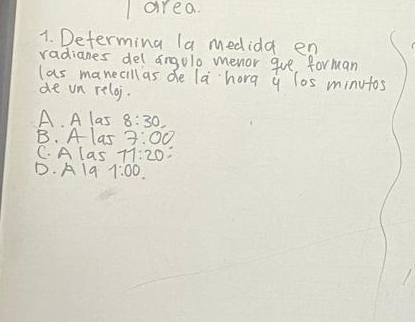 Tarea.
1. Determina la medida en
radianes del ángulo menor que forman
las manecillas de la hora y los minutos
de un reloj.
A. A las 8:30.
B. A las 7:00
C. A las 11:20.
D. A la 1:00.